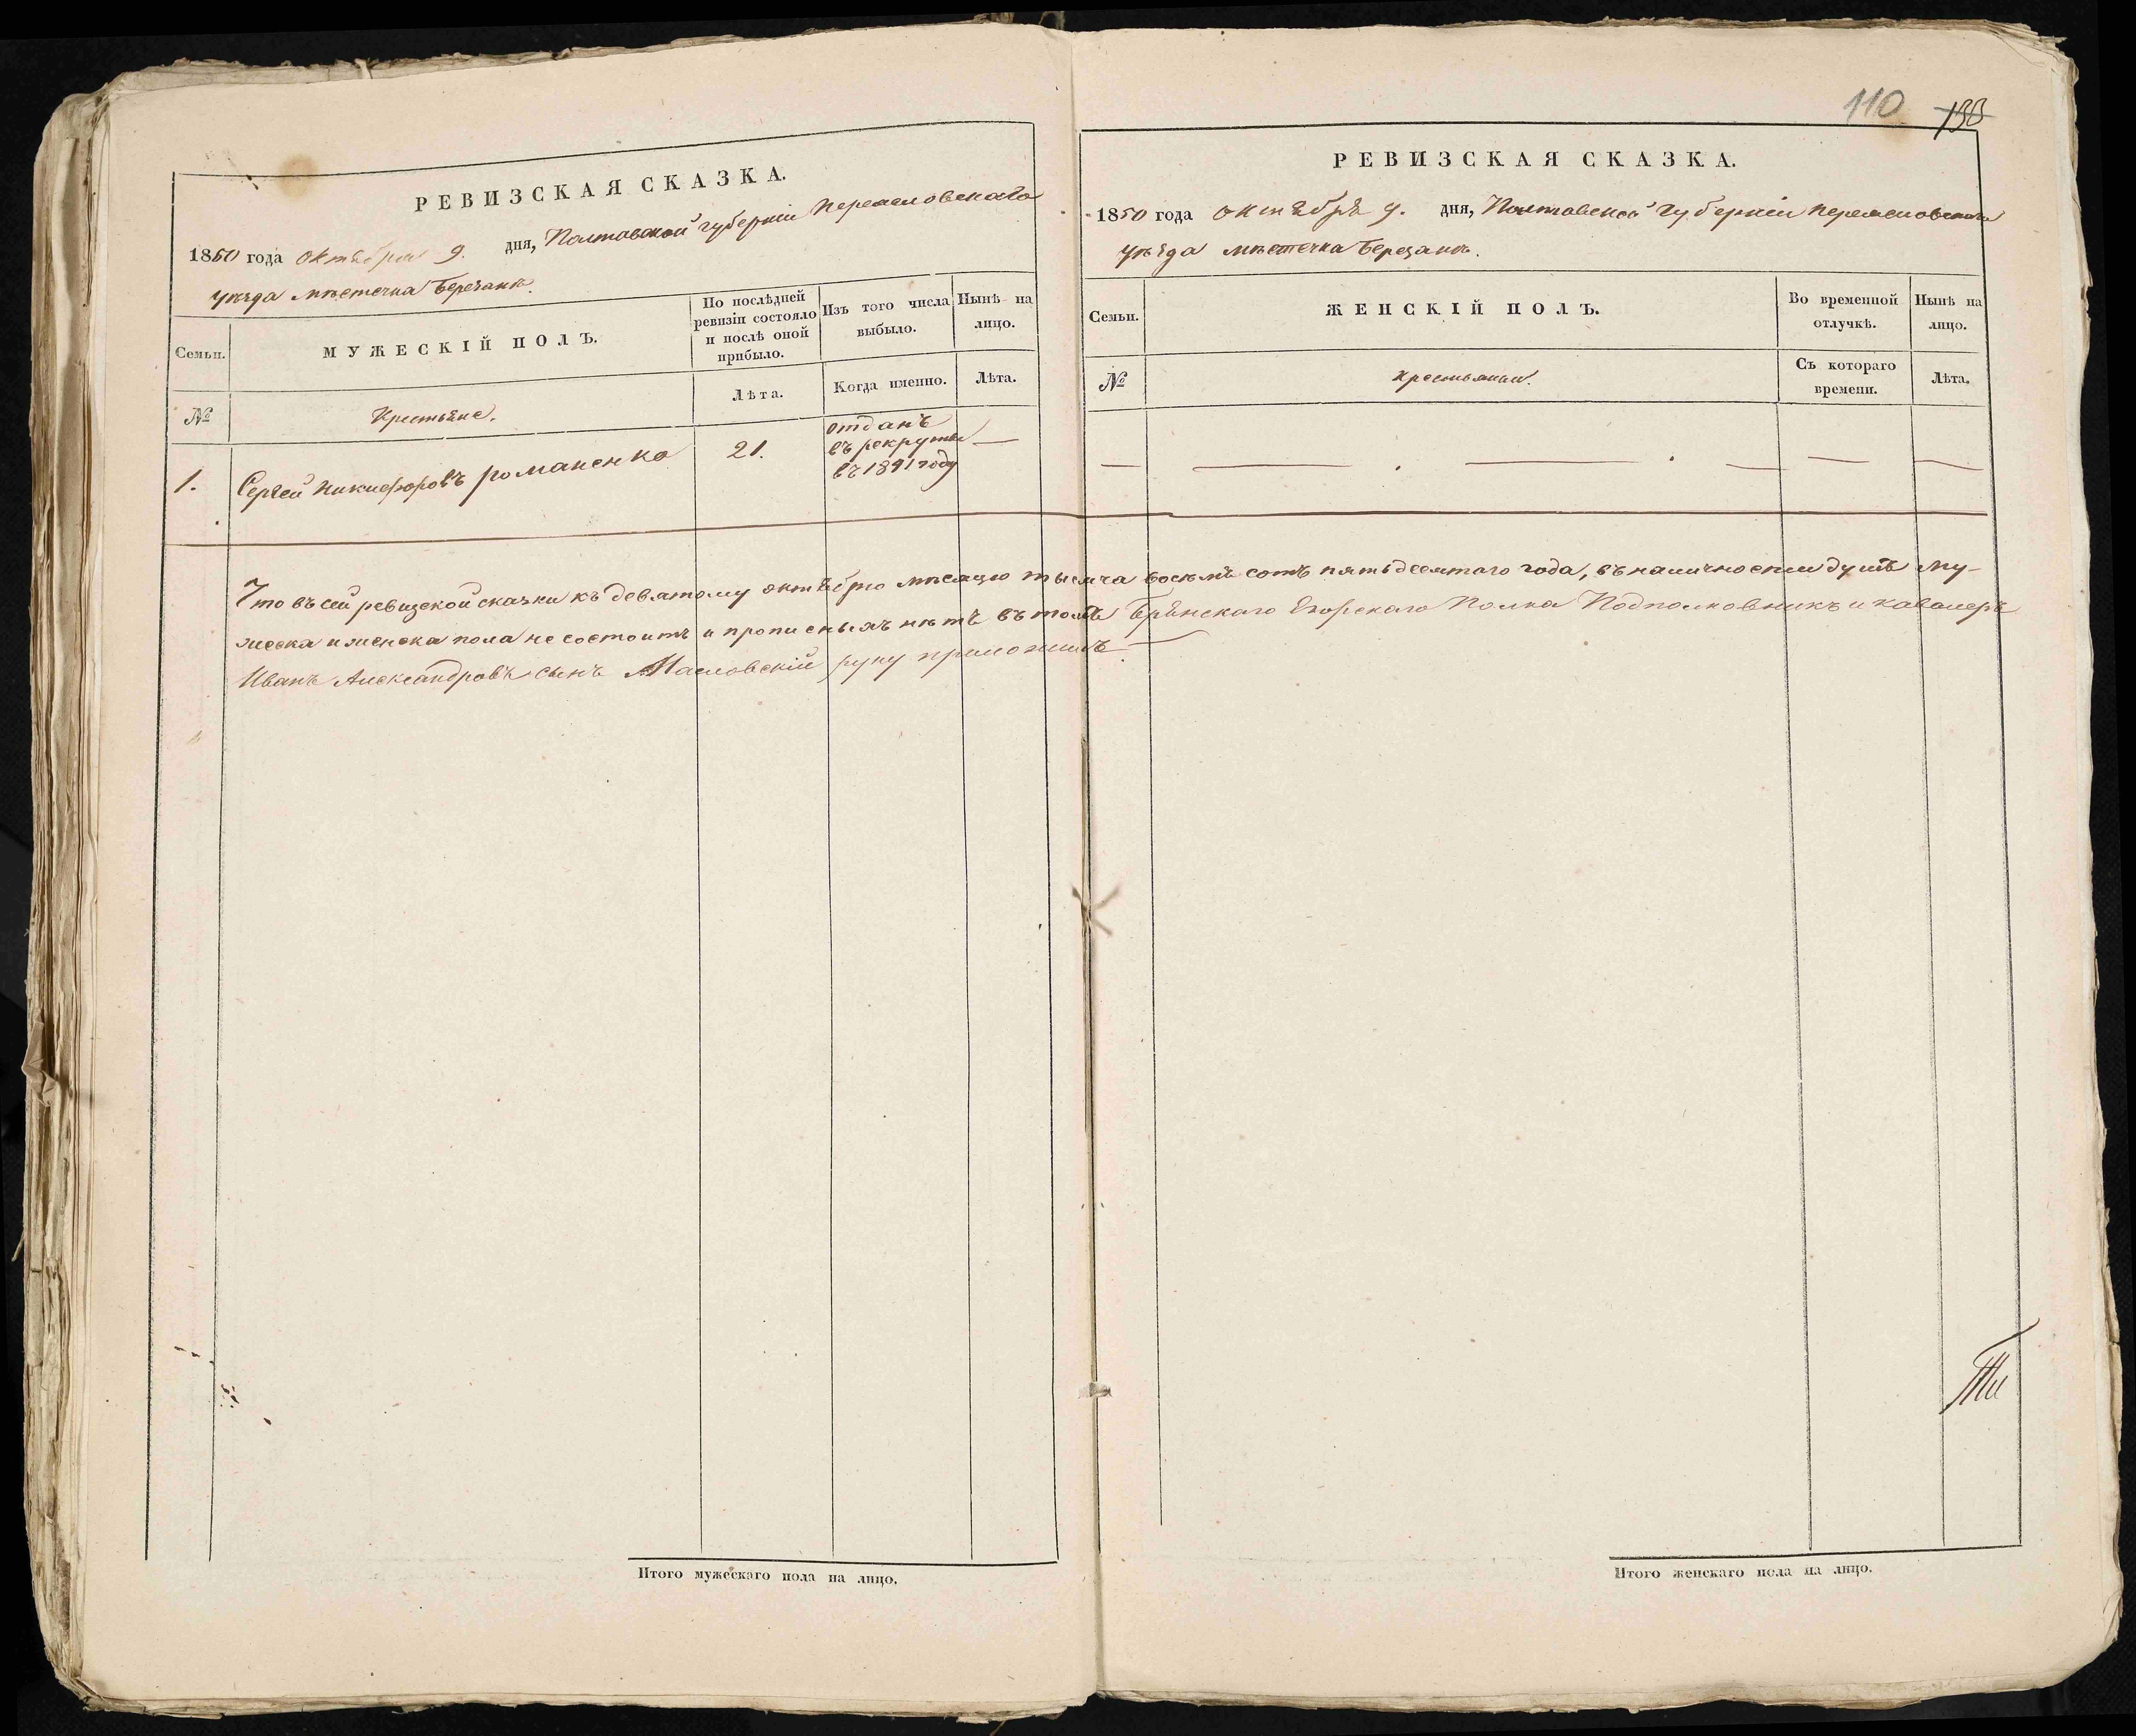 РЕВИЗСКАЯ СКАЗКА.
1850 года Октября 9. дня, Полтавской губерніи Переясловскаго
уѣзда мѣстечка Березани.
Семьи.
МУЖЕСКІЙ ПОЛЪ.
По послѣдней
ревизіи состояло
и послѣ оной
прибыло.
Изъ того числа
выбыло.
Нынѣ на
лицо.
№
Крестьяне.
Лѣта.
Когда именно.
Лѣта.
1.
Сергей Никифоровъ Романенко
21.
отданъ
въ рекруты
въ 1841 году
—
110 138
РЕВИЗСКАЯ СКАЗКА.
1850 года Октября 9. дня, Полтавской губерніи Переясловскаго
уѣзда мѣстечка Березани.
Семьи.
ЖЕНСКІЙ ПОЛЪ.
Во временной
отлучкѣ.
Нынѣ на
лицо.
№
Крестьянки.
Съ котораго
времени.
Лѣта.
Что въ сей ревизской сказки къ девятому октября мѣсяцю тысяча восемь сотъ пятьдесятаго года, въ наличности душъ му-
жеска и женска пола не состоитъ и прописныхъ нѣтъ въ томъ Брянскаго Егорскаго Полка Подполковникъ и кавалеръ
Иванъ Александровъ сынъ Масловскій руку приложилъ
Итого мужескаго пола на лицо.
Итого женскаго пола на лицо.